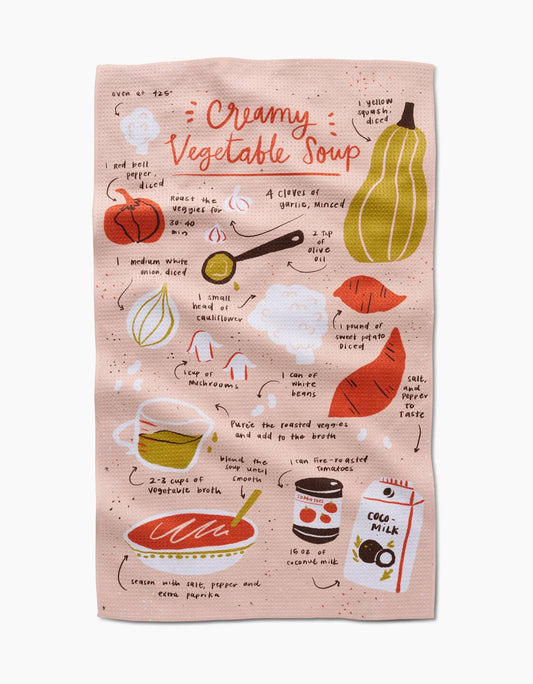 oven at 425°
Creamy
Vegetable Soup
1 yellow
squash,
diced
1 Red bell
pepper,
diced
Roast the
veggies for
30-40
min
4 cloves of
garlic, minced
2 Tsp
of
olive
oil
1 medium white
onion, diced
1 small
head of
cauliflower
1 pound of
sweet potato
Diced
1 cup of
Mushrooms
1 can of
white
beans
salt,
and
pepper
to
Taste
Pureé the roasted veggies
and add to the broth
2-3 cups of
vegetable broth
blend the
soup until
smooth
1 can fire-roasted
Tomatoes
COCO-
MILK
15 oz of
coconut milk
season with salt, pepper and
extra paprika